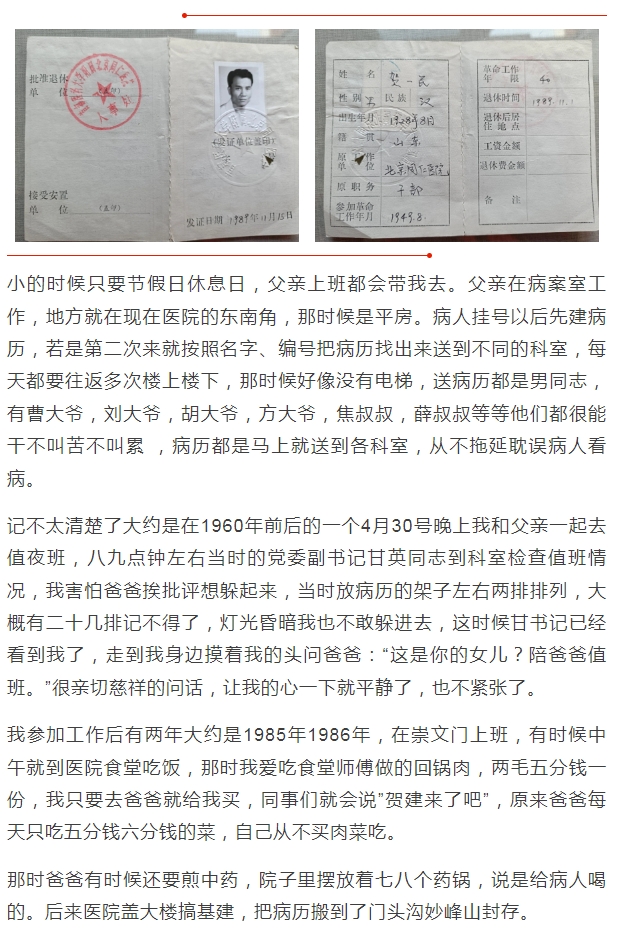 批准退休
单 位 (盖印)
(发证单位盖印)
接受安置
单 位 (盖印)
发证日期 1989年11月15日
姓 名 贺一民
性别 民族 汉
出生年月 1928年8月
籍 贯 山东
原工作
单 位 北京同仁医院
原职务 干部
参加革命
工作年月 1949.8.
革命工作
年 限 40
退休时间 1989.11.
退休后居
住地点
工资金额
退休费金额
备 注
小的时候只要节假日休息日，父亲上班都会带我去。父亲在病案室工
作，地方就在现在医院的东南角，那时候是平房。病人挂号以后先建病
历，若是第二次来就按照名字、编号把病历找出来送到不同的科室，每
天都要往返多次楼上楼下，那时候好像没有电梯，送病历都是男同志，
有曹大爷，刘大爷，胡大爷，方大爷，焦叔叔，薛叔叔等等他们都很能
干不叫苦不叫累 ，病历都是马上就送到各科室，从不拖延耽误病人看
病。
记不太清楚了大约是在1960年前后的一个4月30号晚上我和父亲一起去
值夜班，八九点钟左右当时的党委副书记甘英同志到科室检查值班情
况，我害怕爸爸挨批评想躲起来，当时放病历的架子左右两排排列，大
概有二十几排记不得了，灯光昏暗我也不敢躲进去，这时候甘书记已经
看到我了，走到我身边摸着我的头问爸爸：“这是你的女儿？陪爸爸值
班。”很亲切慈祥的问话，让我的心一下就平静了，也不紧张了。
我参加工作后有两年大约是1985年1986年，在崇文门上班，有时候中
午就到医院食堂吃饭，那时我爱吃食堂师傅做的回锅肉，两毛五分钱一
份，我只要去爸爸就给我买，同事们就会说”贺建来了吧”，原来爸爸每
天只吃五分钱六分钱的菜，自己从不买肉菜吃。
那时爸爸有时候还要煎中药，院子里摆放着七八个药锅，说是给病人喝
的。后来医院盖大楼搞基建，把病历搬到了门头沟妙峰山封存。